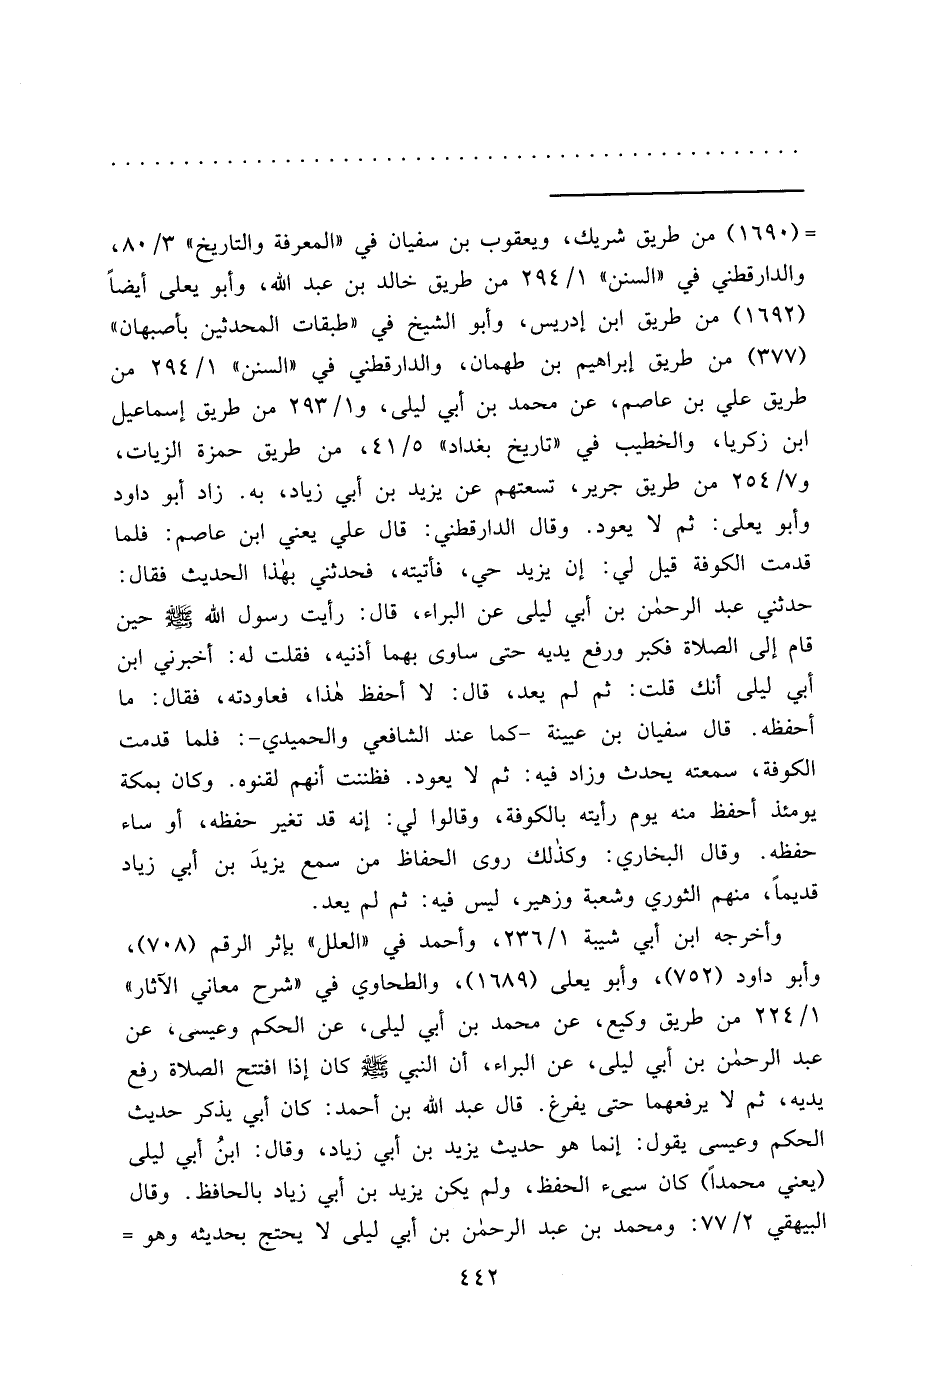 = (١٦٩٠) من طريق شريك، ويعقوب بن سفيان في «المعرفة والتاريخ» ٨٠/٣،
والدارقطني في «السنن» ٢٩٤/١ من طريق خالد بن عبد الله، وأبو يعلى أيضاً
(١٦٩٢) من طريق ابن إدريس، وأبو الشيخ في «طبقات المحدثين بأصبهان»
(٣٧٧) من طريق إبراهيم بن طهمان، والدارقطني في «السنن» ٢٩٤/١ من
طريق علي بن عاصم، عن محمد بن أبي ليلى، و٢٩٣/١ من طريق إسماعيل
ابن زكريا، والخطيب في «تاريخ بغداد» ٤١/٥، من طريق حمزة الزيات،
و٢٥٤/٧ من طريق جرير، تسعتهم عن يزيد بن أبي زياد، به. زاد أبو داود
وأبو يعلى: ثم لا يعود. وقال الدارقطني: قال علي يعني ابن عاصم: فلما
قدمت الكوفة قيل لي: إن يزيد حي، فأتيته، فحدثني بهٰذا الحديث فقال:
حدثني عبد الرحمٰن بن أبي ليلى عن البراء، قال: رأيت رسول الله ﷺ حين
قام إلى الصلاة فكبر ورفع يديه حتى ساوى بهما أذنيه، فقلت له: أخبرني ابن
أبي ليلى أنك قلت: ثم لم يعد، قال: لا أحفظ هٰذا، فعاودته، فقال: ما
أحفظه. قال سفيان بن عيينة -كما عند الشافعي والحميدي-: فلما قدمت
الكوفة، سمعته يحدث وزاد فيه: ثم لا يعود. فظننت أنهم لقنوه. وكان بمكة
يومئذ أحفظ منه يوم رأيته بالكوفة، وقالوا لي: إنه قد تغير حفظه، أو ساء
حفظه. وقال البخاري: وكذٰلك روى الحفاظ من سمع يزيدَ بن أبي زياد
قديماً، منهم الثوري وشعبة وزهير، ليس فيه: ثم لم يعد.
وأخرجه ابن أبي شيبة ٢٣٦/١، وأحمد في «العلل» بإثر الرقم (٧٠٨)،
وأبو داود (٧٥٢)، وأبو يعلى (١٦٨٩)، والطحاوي في «شرح معاني الآثار»
٢٢٤/١ من طريق وكيع، عن محمد بن أبي ليلى، عن الحكم وعيسى، عن
عبد الرحمٰن بن أبي ليلى، عن البراء، أن النبي ﷺ كان إذا افتتح الصلاة رفع
يديه، ثم لا يرفعهما حتى يفرغ. قال عبد الله بن أحمد: كان أبي يذكر حديث
الحكم وعيسى يقول: إنما هو حديث يزيد بن أبي زياد، وقال: ابنُ أبي ليلى
(يعني محمداً) كان سيىء الحفظ، ولم يكن يزيد بن أبي زياد بالحافظ. وقال
البيهقي ٧٧/٢: ومحمد بن عبد الرحمٰن بن أبي ليلى لا يحتج بحديثه وهو =
٤٤٢